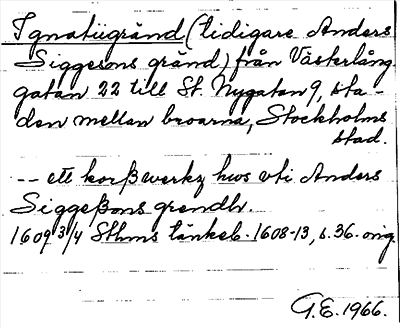 Ignatiigränd (tidigare Anders
Siggesons gränd) från Västerlång-
gatan 22 till St. Nygatan 9, sta-
den mellan broarna, Stockholms
stad.
-- ett korßwerkz hws vti Anders
Siggeßons grendh.
1609 3/4 Sthms tänkeb. 1608-13, s. 36. orig.
G.E. 1966.